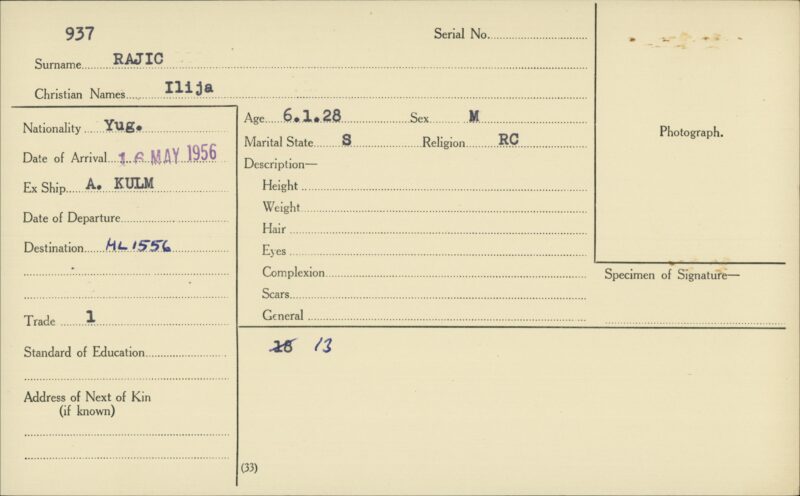 937
Serial No.
Surname RAJIC
Christian Names Ilija
Nationality Yug.
Date of Arrival 16 MAY 1956
Ex Ship A. KULM
Date of Departure
Destination HL 1556
Trade 1
Standard of Education
Address of Next of Kin
(if known)
Age 6.1.28 Sex M
Marital State S Religion RC
Description—
Height
Weight
Hair
Eyes
Complexion
Scars
General
18 13
(33)
Photograph.
Specimen of Signature—